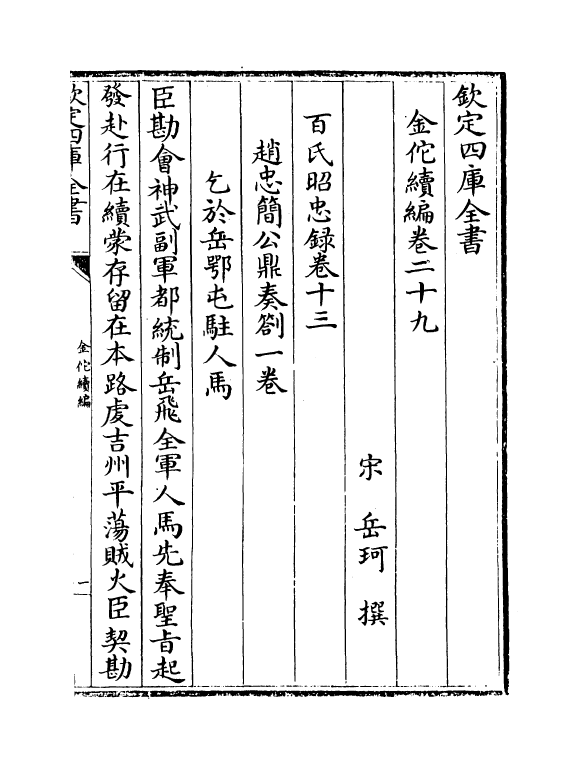 欽定四庫全書
金佗續編卷二十九
宋 岳珂 撰
百氏昭忠録卷十三
趙忠簡公鼎奏劄一卷
乞於岳鄂屯駐人馬
臣勘會神武副軍都統制岳飛全軍人馬先奉聖旨起
發赴行在續蒙存留在本路虔吉州平蕩賊火臣契勘
欽定四庫全書
金佗續編
一